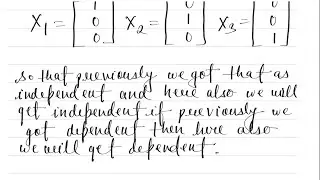 X₁ = [1 0 0] X₂ = [0 1 0] X₃ = [0 0 1]
so that previously we got that as
independent and here also we will
get independent if previously we
got dependent then here also
we will get dependent.